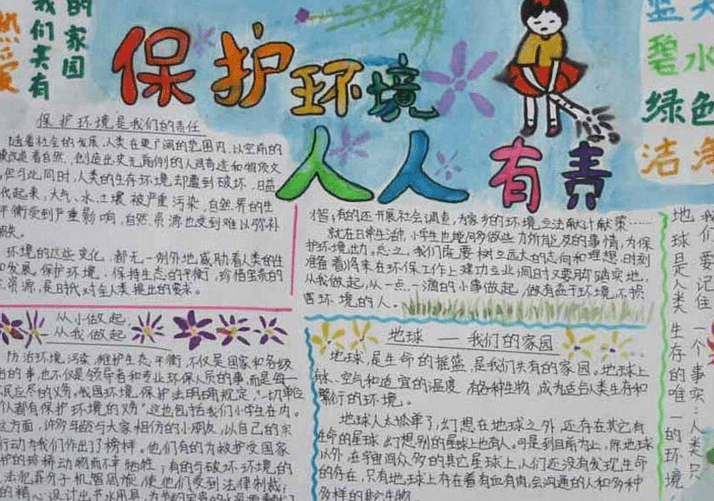 热爱
我们共有
的家园
保护环境
人人有责
蓝天
碧水
绿色
洁净
保护环境是我们的责任
随着社会的发展,人类在更广阔的范围内,以空前的
改造着自然,创造出史无前例的人间奇迹和物质文
但与此同时,人类的生存环境却遭到破坏,日益
起来,大气、水、土壤被严重污染,自然界的生
平衡受到严重影响,自然资源也受到难以弥补
损失。
环境的这些变化,都无一例外地威胁着人类的生
和发展。保护环境,保持生态的平衡,珍惜宝贵的
资源,是时代对全人类提出的要求。
从小做起,
从我做起
防治环境污染,维护生态平衡,不仅是国家和各级
的事,也不仅是领导者和专业环保人员的事,而是每一
民应尽的义务。我国环境保护法明确规定,“一切单位
都有保护环境的义务”这也包括我们小学生在内。
方面,许多年龄与大家相仿的小朋友,以自己的实
行动为我们作出了榜样。他们有的为救护受国家
护的珍稀动物而牺牲;有的与破坏环境的
法犯罪分子机智周旋,使他们受到法律制裁;
的精心设计出节水用具
有的还开展社会调查,为家乡的环境立法献计献策……
就在日常生活中,小学生也堆问多做些力所能及的事情,为保
护环境出力。总之,我们既要树立远大的志向和理想,时刻
准备着将来在环保工作上建功立业,同时又要脚踏实地,
从我做起,从一点一滴的小事做起,做有益于环境、不损
害环境的人。
地球——我们的家园
地球,是生命的摇篮,是我们共有的家园。地球上
空气和适宜的温度,有各种生物,成为适合人类生存和
繁衍的环境。
地球人太孤单了,幻想在地球之外,还存在其它有
生命的星球,幻想别的星球上也有人。可是到目前为止,除地球
以外,在宇宙间众多的其它星球上,人们还没有发现生命
的存在,只有地球上存在着有血有肉,会沟通的人和多种
多样的其它生物。
我们要记住一个事实:人类
地球是人类生存的唯一的环境